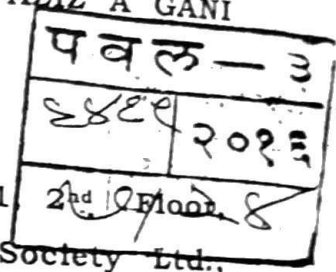 A GANI
पवल - ३
६४६९ २०१३
2nd Floor ४
Society Ltd.,